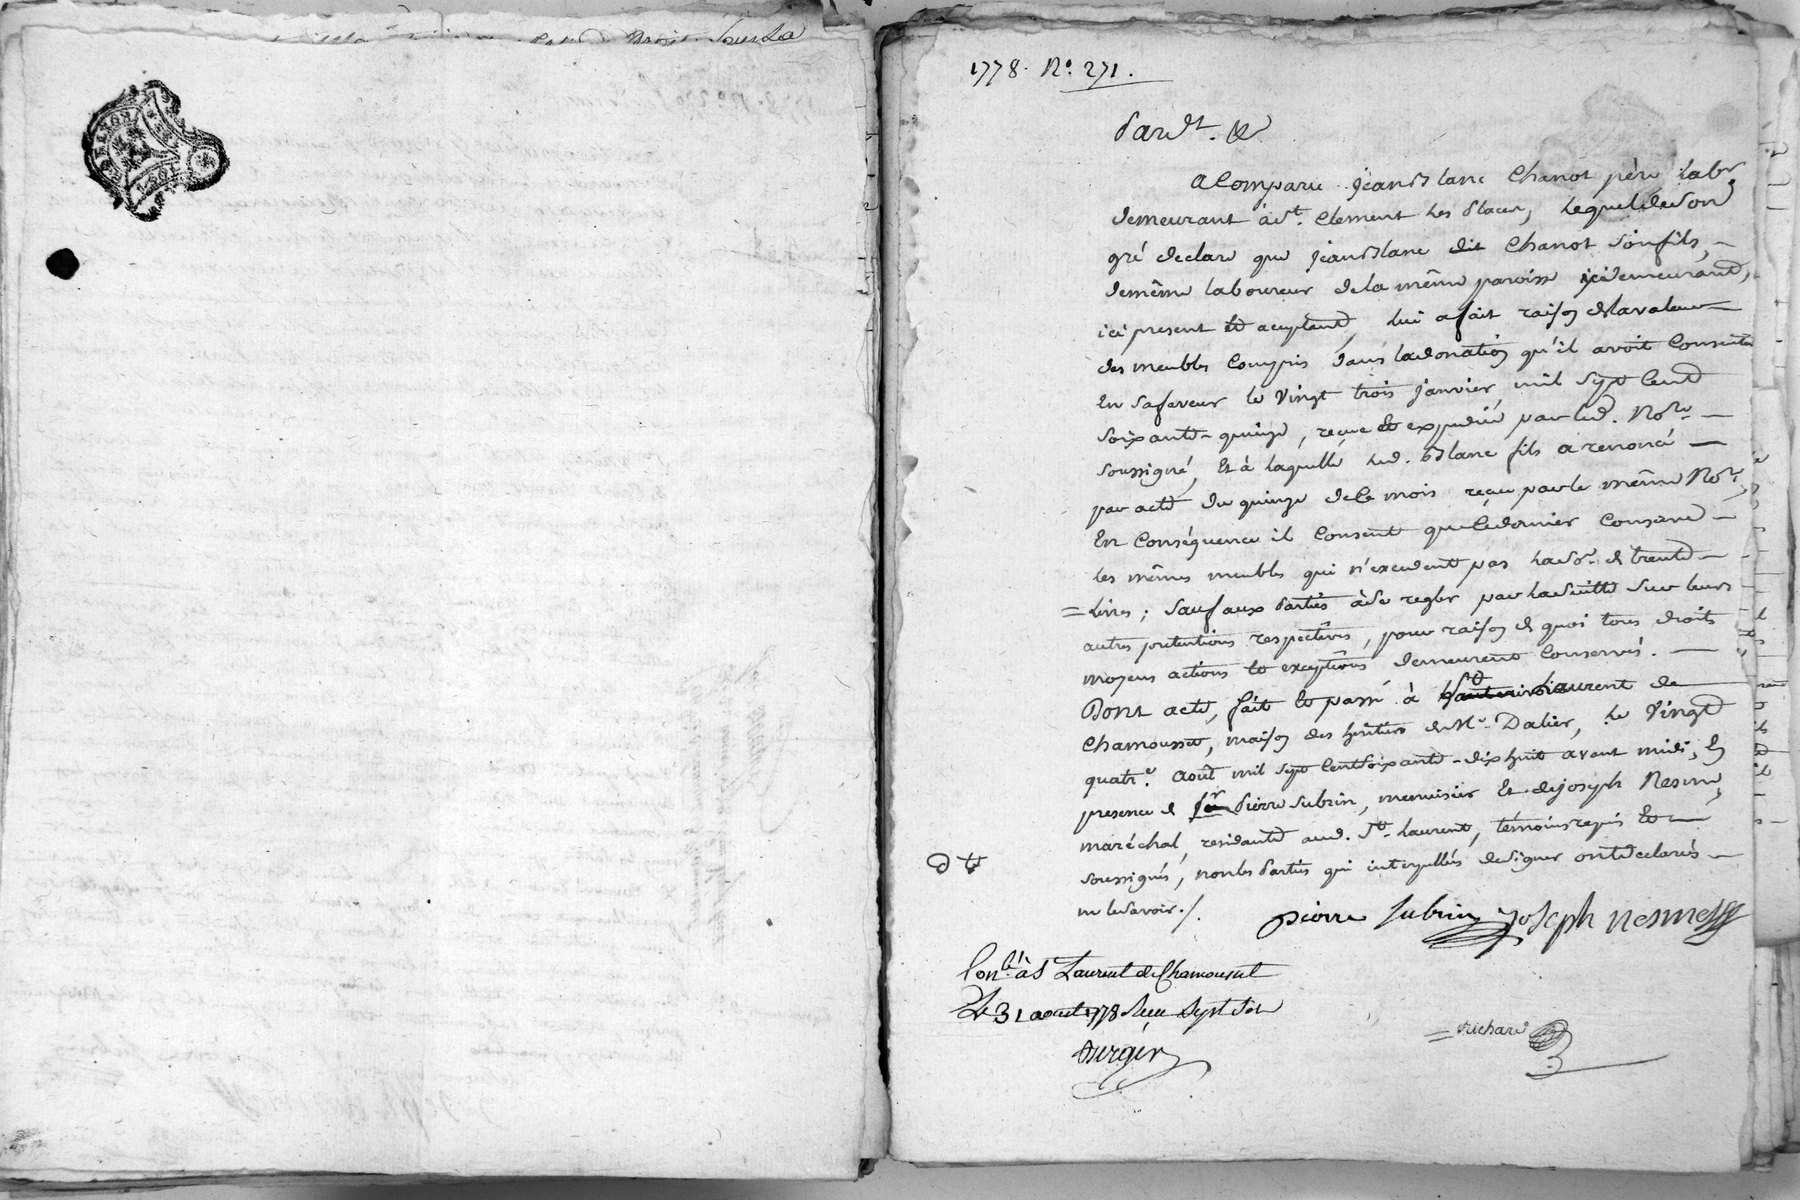 1778. No. 271.
Pardt. &c
a Comparu jean Blanc Chanot père Labr
demeurant à St. Clement les Places, lequel de son
gré declare que jean Blanc dit Chanot son fils,
de même laboureur de la même paroisse y demeurant,
ici present et acceptant, lui a fait raison de la valeur
des meubles Compris dans la donation qu'il avoit Consentie
En sa faveur le vingt trois janvier mil sept Cent
soixante-quinze, reçue et expediée par led. Nore
soussigné, Et à laquelle led. Blanc fils a renoncé
par acte du quinze de Ce mois reçu par le même Nore,
En Conséquence il Consent que Ce dernier Conserve
les mêmes meubles qui n'excedent pas la so.e de trente
= Livres ; sauf aux Parties à se regler par la suitte sur leurs
autres pretentions respectives, pour raison de quoi tous droits
moyens actions et exceptions demeurent Conservés.
Dont acte, fait et passé à St Laurent de
Chamousset, maison des heritiers de Me. Dalier, le vingt
quatr.e août mil sept Cent soixante-dix huit avant midi, En
presence de Sr Pierre Subrin, menuisier Et de joseph Nesme,
maréchal, residants aud. St. Laurent, témoins requis Et
soussignés, non les Parties qui interpellées de signer ont declarés
ne le savoir./.
pierre subrin joseph nesme
Conlé à St Laurent de Chamousset
Le 31 aout 1778 Reçu sept sols
Burgin
= Richard